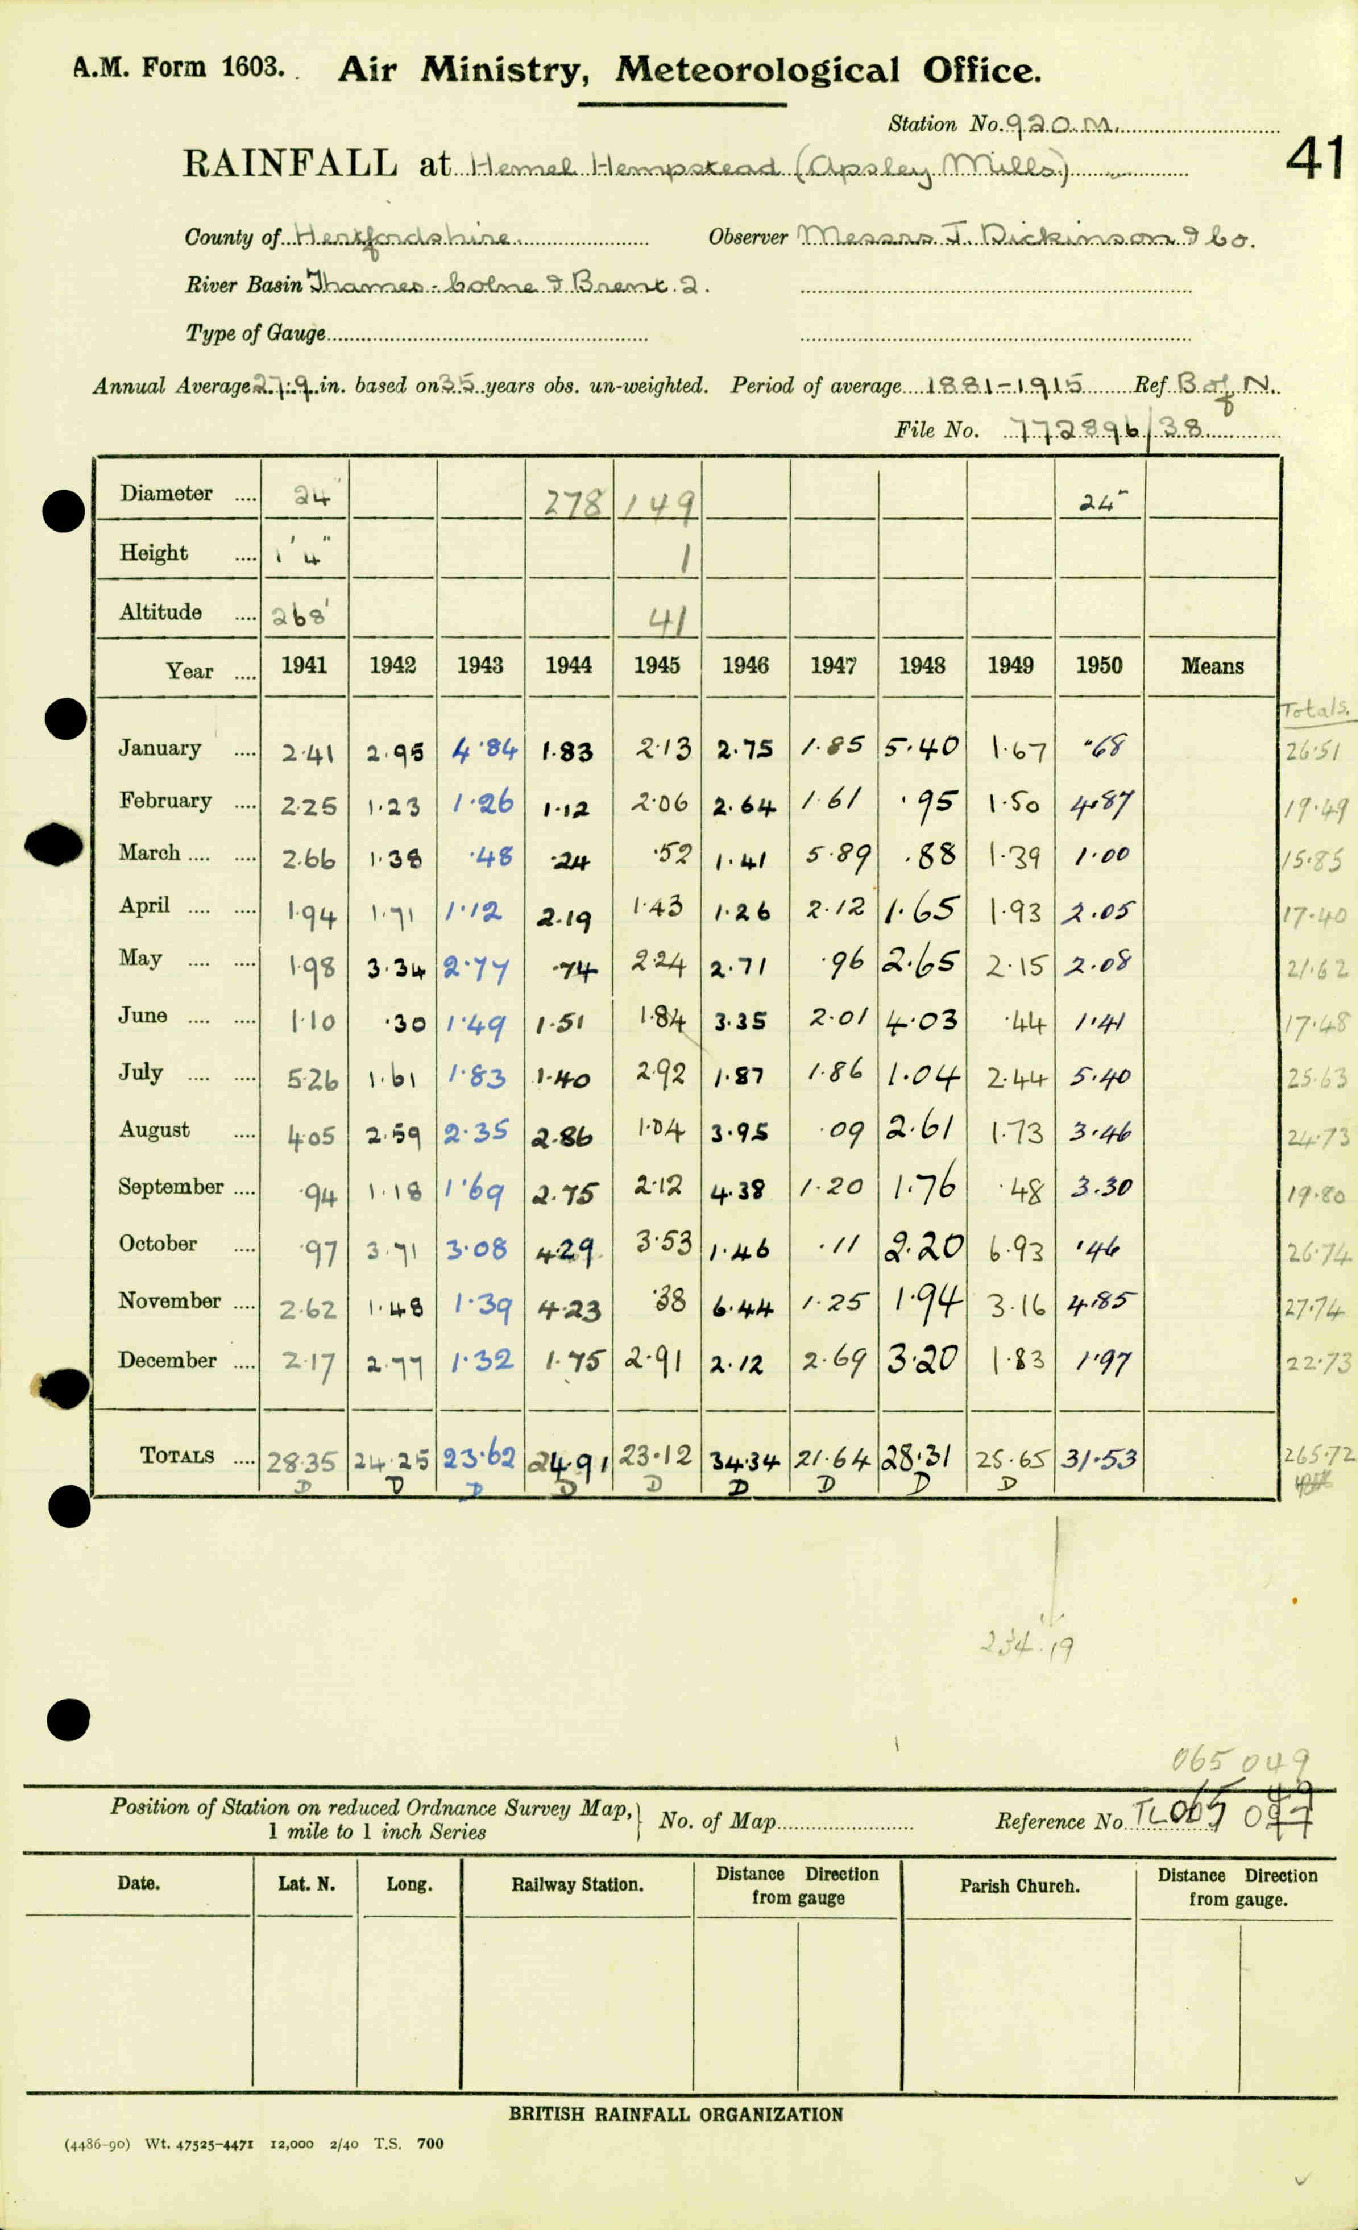 A.M. Form 1603. Air Ministry, Meteorological Office.
Station No. 920.M.
41
RAINFALL at Hemel Hempstead (Apsley Mills)
County of Hertfordshire. Observer Messrs J. Dickinson & Co.
River Basin Thames - Colne & Brent. 2.
Type of Gauge
Annual Average 27.9 in. based on 35 years obs. un-weighted. Period of average 1881-1915 Ref B of N.
File No. 772896/38
Diameter .... 24" 278 149 24"
Height .... 1' 4" 1
Altitude .... 268' 41
Year .... 1941 1942 1943 1944 1945 1946 1947 1948 1949 1950 Means
Totals.
January .... 2.41 2.95 4.84 1.83 2.13 2.75 1.85 5.40 1.67 .68 26.51
February .... 2.25 1.23 1.26 1.12 2.06 2.64 1.61 .95 1.50 4.87 19.49
March .... .... 2.66 1.38 .48 .24 .52 1.41 5.89 .88 1.39 1.00 15.85
April .... .... 1.94 1.71 1.12 2.19 1.43 1.26 2.12 1.65 1.93 2.05 17.40
May .... .... 1.98 3.34 2.77 .74 2.24 2.71 .96 2.65 2.15 2.08 21.62
June .... .... 1.10 .30 1.49 1.51 1.84 3.35 2.01 4.03 .44 1.41 17.48
July .... .... 5.26 1.61 1.83 1.40 2.92 1.87 1.86 1.04 2.44 5.40 25.63
August .... 4.05 2.59 2.35 2.86 1.04 3.95 .09 2.61 1.73 3.46 24.73
September .... .94 1.18 1.69 2.75 2.12 4.38 1.20 1.76 .48 3.30 19.80
October .... .97 3.71 3.08 4.29 3.53 1.46 .11 2.20 6.93 .46 26.74
November .... 2.62 1.48 1.39 4.23 .38 6.44 1.25 1.94 3.16 4.85 27.74
December .... 2.17 2.77 1.32 1.75 2.91 2.12 2.69 3.20 1.83 1.97 22.73
TOTALS .... 28.35 24.25 23.62 24.91 23.12 34.34 21.64 28.31 25.65 31.53 265.72
D D D D D D D D D
234.19
065 049
Position of Station on reduced Ordnance Survey Map,
1 mile to 1 inch Series
No. of Map
Reference No. TL 065
Date. Lat. N. Long. Railway Station. Distance Direction from gauge Parish Church. Distance Direction from gauge.
BRITISH RAINFALL ORGANIZATION
(4486-90) Wt. 47525-4471 12,000 2/40 T.S. 700